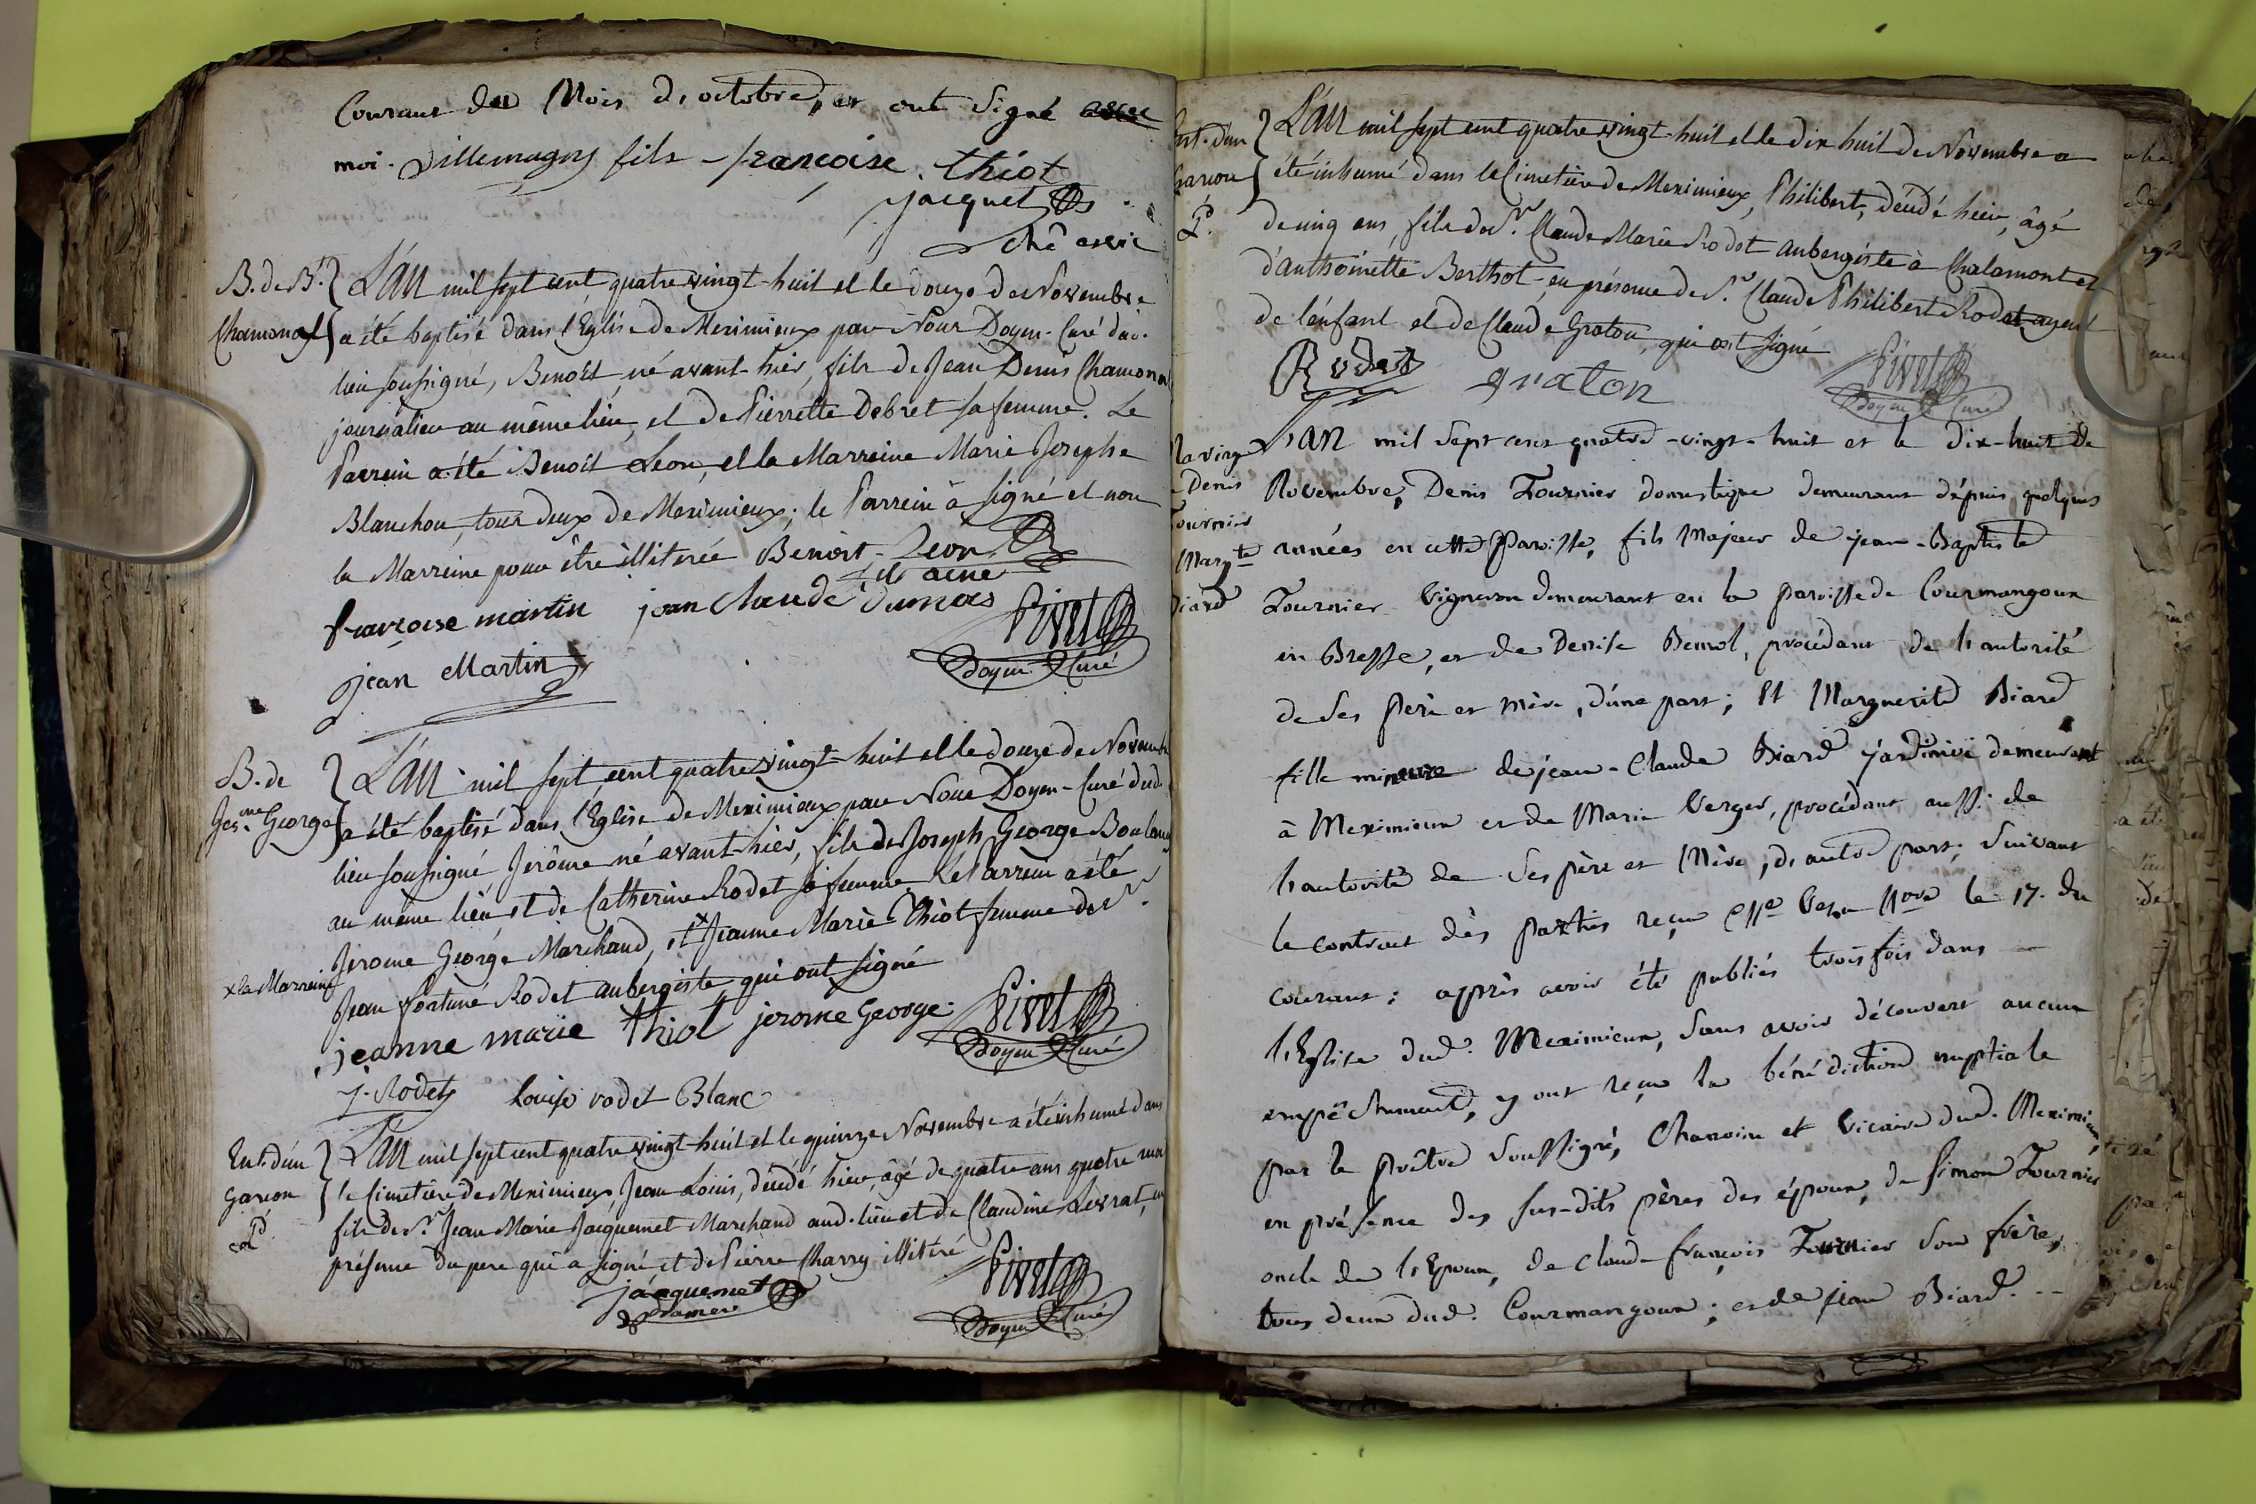 Courant du Mois d'octobre, et ont signé avec
moi. Villemagny fils françoise thiot
jacquet
B. de Bt. L'an mil sept cent quatre vingt-huit et le douze de Novembre
Chamonal a été baptisé dans l'Eglise de Meximieux par Nous Doyen-Curé dud.
lieu soussigné, Benoît né avant-hier, fils de Jean Denis Chamonal
journalier au même lieu, et de Pierrette Debret sa femme. Le
Parrein a été Benoît Leon, et la Marreine Marie Josephe
Blanchon, tous deux de Meximieux; le Parrein a signé et non
la Marreine pour être illiterée Benoit Leon
fils ainé
françoise martin jean Claude Dumas Pivet
jean Martin Doyen Curé
B. de L'an mil sept cent quatre vingt-huit et le douze de Novembre
Jerme George a été baptisé dans l'Eglise de Meximieux par Nous Doyen-Curé dud.
lieu soussigné Jerôme né avant-hier, fils de Joseph George Boulang
au même lieu, et de Catherine Rodet sa femme. Le Parrein a été
Jerome George Marchand, et x Jeanne Marie Thiot femme de Sr.
x la Marreine Jean fortuné Rodet aubergiste qui ont signé
jeanne marie thiot jerome George Pivet
Doyen Curé
J. Rodet Louise rodet Blanc
Ent. d'un L'an mil sept cent quatre vingt-huit et le quinze Novembre a été inhumé dans
garcon le Cimetière de Meximieux, Jean Louis, décédé hier, âgé de quatre ans quatre moi
fils de Sr. Jean Marie Jacquemet Marchand aud. lieu et de Claudine Levrat, en
présence du pere qui a signé et de Pierre Charry illitéré
jacquemet Pivet
Doyen Curé
Ent. d'un L'an mil sept cent quatre vingt-huit et le dix huit de Novembre a
Garcon été inhumé dans le Cimetière de Meximieux, Philibert, décédé hier, âgé
P. de cinq ans, fils de Sr. Claude Marie Rodet aubergiste à Chalamont et
d'anthoinette Berthot, en présence de Sr. Claude Philibert Rodet ayeul
de l'enfant et de Claude Graton, qui ont signé
Rodet graton Pivet
Doyen Curé
L'an mil sept cent quatre-vingt-huit et le dix-huit de
Denis Novembre, Denis Fournier domestique demeurant dépuis quelques
fournier années en cette Paroisse, fils Majeur de jean-Baptiste
Margte
Biard Fournier Vigneron demeurant en la paroisse de Courmangoux
en Bresse, et de Denise procédant de l'autorité
de ses père et mère, d'une part; Et Marguerite Biard
fille mineure de jean-Claude Biard jardinier demeurant
à Meximieux et de Marie Verger, procédant aussi de
l'autorité de ses père et Mère, d'autre part; Suivant
le contract dès parties reçu le 17. du
courant; après avoir été publiés trois fois dans
l'Eglise dud. Meximieux, sans avoir découvert aucun
empêchement, y ont reçu la bénédiction nuptiale
par le prêtre soussigné, Chanoine et Vicaire dud. Meximieux,
en présence des sus-dits pères des époux, de simon Fournier
oncle de l'Epoux, de claude françois Fournier son frère,
tous deux dud. Courmangoux; et de jean Biard.